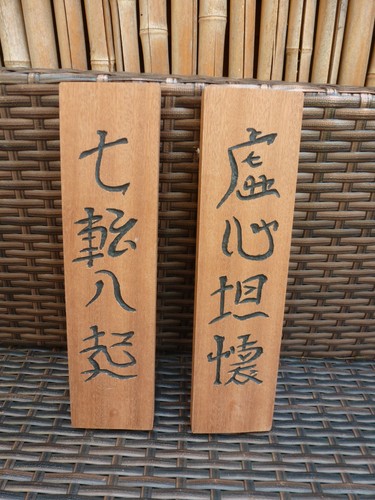 虚心坦懐
七転八起